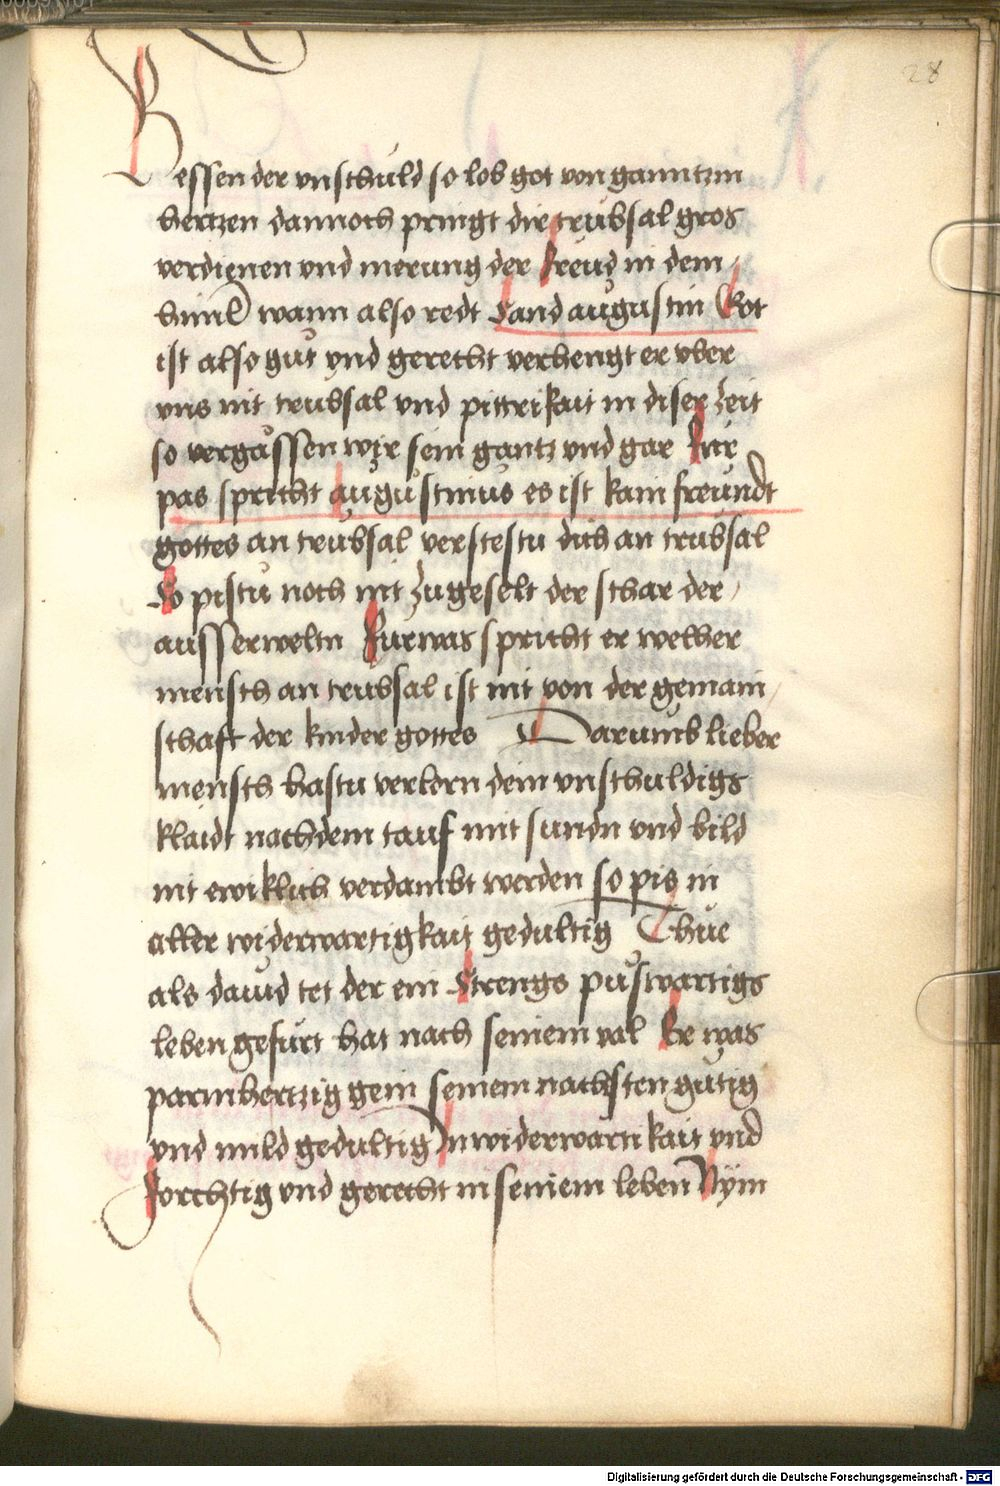 28
Bessen der vnschuld so lob got von ganntzm
hertzen dannoch pringt die trubsal gros
verdienen vnd merung der freud in dem
himl wann also redt Sand augustin Got
ist also gut vnd gerecht verhengt er vber
vns nit trubsal vnd pittrikait in diser zeit
so vergässen wir sein gantz vnd gar Fur
pas spricht augustinus es ist kain freundt
gottes an trubsal verstestu dich an trubsal
So pistu noch nit zugeselt der schar der
ausserweltn Furwar spricht er welher
mensch an trubsal ist nit von der gemain
schaft der kinder gottes Darumb lieber
mensch hastu verlorn dein vnschuldigs
klaidt nach dem tauf mit sundn vnd bild
nit ewiklich verdambt werden so pis in
aller widerwartigkait gedultig Thue
als dauid tet der ein Strengs puswartigs
leben gefurt hat nach seinem val Er was
parmhertzig gein seinem nachsten gutig
vnd mild gedultig In widerwartikait vnd
forchtig vnd gerecht in seinem leben Nym
Digitalisierung gefördert durch die Deutsche Forschungsgemeinschaft - DFG